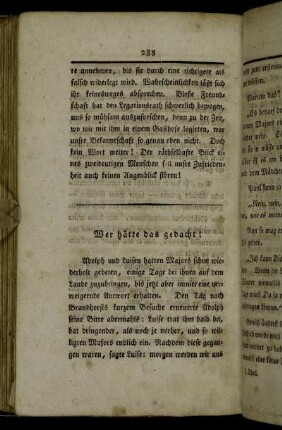 288
re annehmen, bis sie durch eine richtigere als
falsch widerlegt wird. Wahrscheinlichkeit läßt sich
ihr keinesweges absprechen. Bloße Freund-
schaft hat den Legationsrath schwerlich bewogen,
uns so mühsam auszuforschen, denn zu der Zeit,
wo wie mit ihm in einem Gasthofe logirten, war
unsre Bekanntschaft so genau eben nicht. Doch
kein Wort weiter! Der räthselhafte Blick ei-
nes zweideutigen Menschen soll unsre Zufrieden-
heit auch keinen Augenblick stören!
Wer hätte das gedacht!
Adolph und Luisen hatten Majors schon wie-
derholt gebeten, einige Tage bei ihnen auf dem
Lande zuzubringen, bis jetzt aber immer eine ver-
weigernde Antwort erhalten. Den Tag nach
Brandhorsts kurzem Besuche erneuerte Adolph
seine Bitte abermahls: Luise that ihm bald bei,
bat dringender, als noch je vorher, und so wil-
ligten Majors endlich ein. Nachdem diese gegan-
gen waren, sagte Luise: morgen werden wir uns